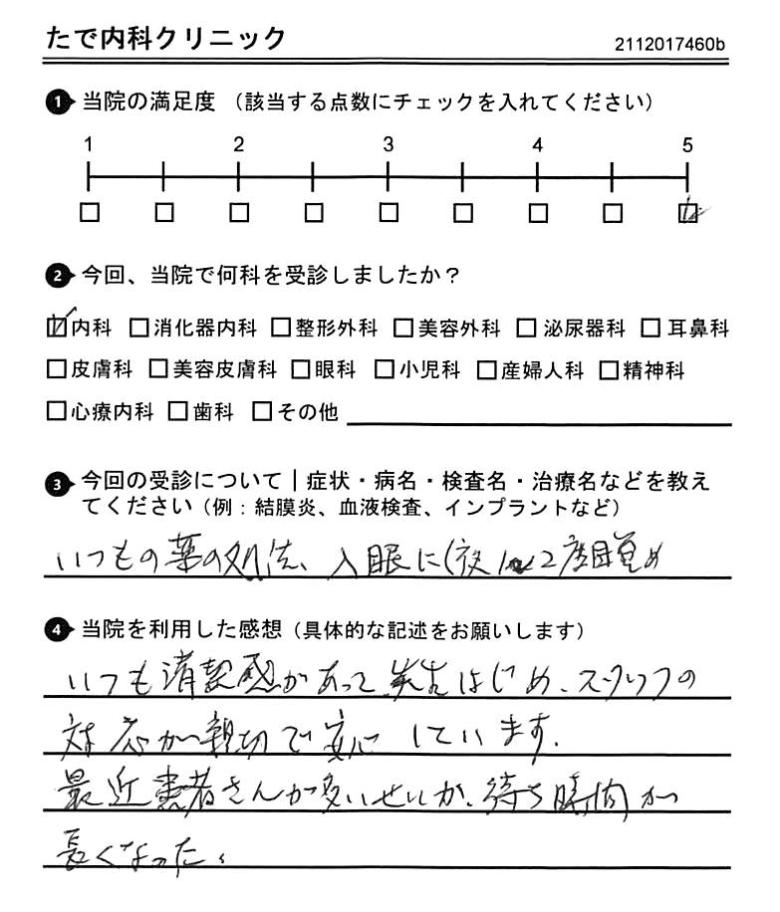 たで内科クリニック
2112017460b
1 当院の満足度 (該当する点数にチェックを入れてください)
1 2 3 4 5
2 今回、当院で何科を受診しましたか?
内科 消化器内科 整形外科 美容外科 泌尿器科 耳鼻科
皮膚科 美容皮膚科 眼科 小児科 産婦人科 精神科
心療内科 歯科 その他
3 今回の受診について|症状・病名・検査名・治療名などを教え
てください(例:結膜炎、血液検査、インプラントなど)
いつもの薬の処方、入眠に(夜1〜2度目覚め
4 当院を利用した感想(具体的な記述をお願いします)
いつも清潔感があって先生はじめ、スタッフの
対応が親切で安心しています.
最近患者さんが多いせいか、待ち時間が
長くなった。